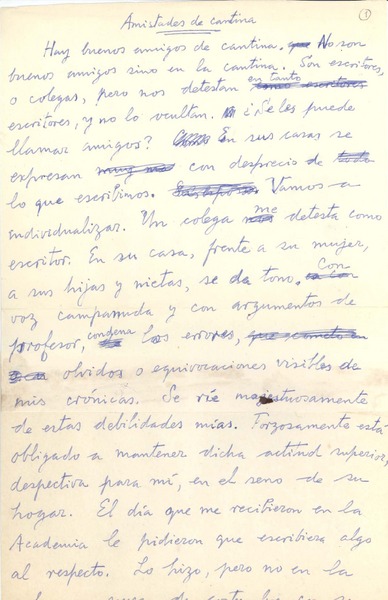 Amistades de cantina
1
Hay buenos amigos de cantina. No son
buenos amigos sino en la cantina. Son escritores,
o colegas, pero nos detestan en tanto
escritores, y no lo ocultan. ¿Se les puede
llamar amigos? En sus casas se
expresan con desprecio de
lo que escribimos. Vamos a
individualizar. Un colega me detesta como
escritor. En su casa, frente a su mujer,
a sus hijas y nietas, se da tono. Con
voz campanuda y con argumentos de
profesor, condena los errores,
olvidos o equivocaciones visibles de
mis crónicas. Se ríe majestuosamente
de estas debilidades mías. Forzosamente está
obligado a mantener dicha actitud superior,
despectiva para mí, en el seno de su
hogar. El día que me recibieron en la
Academia le pidieron que escribiera algo
al respecto. Lo hizo, pero no en la